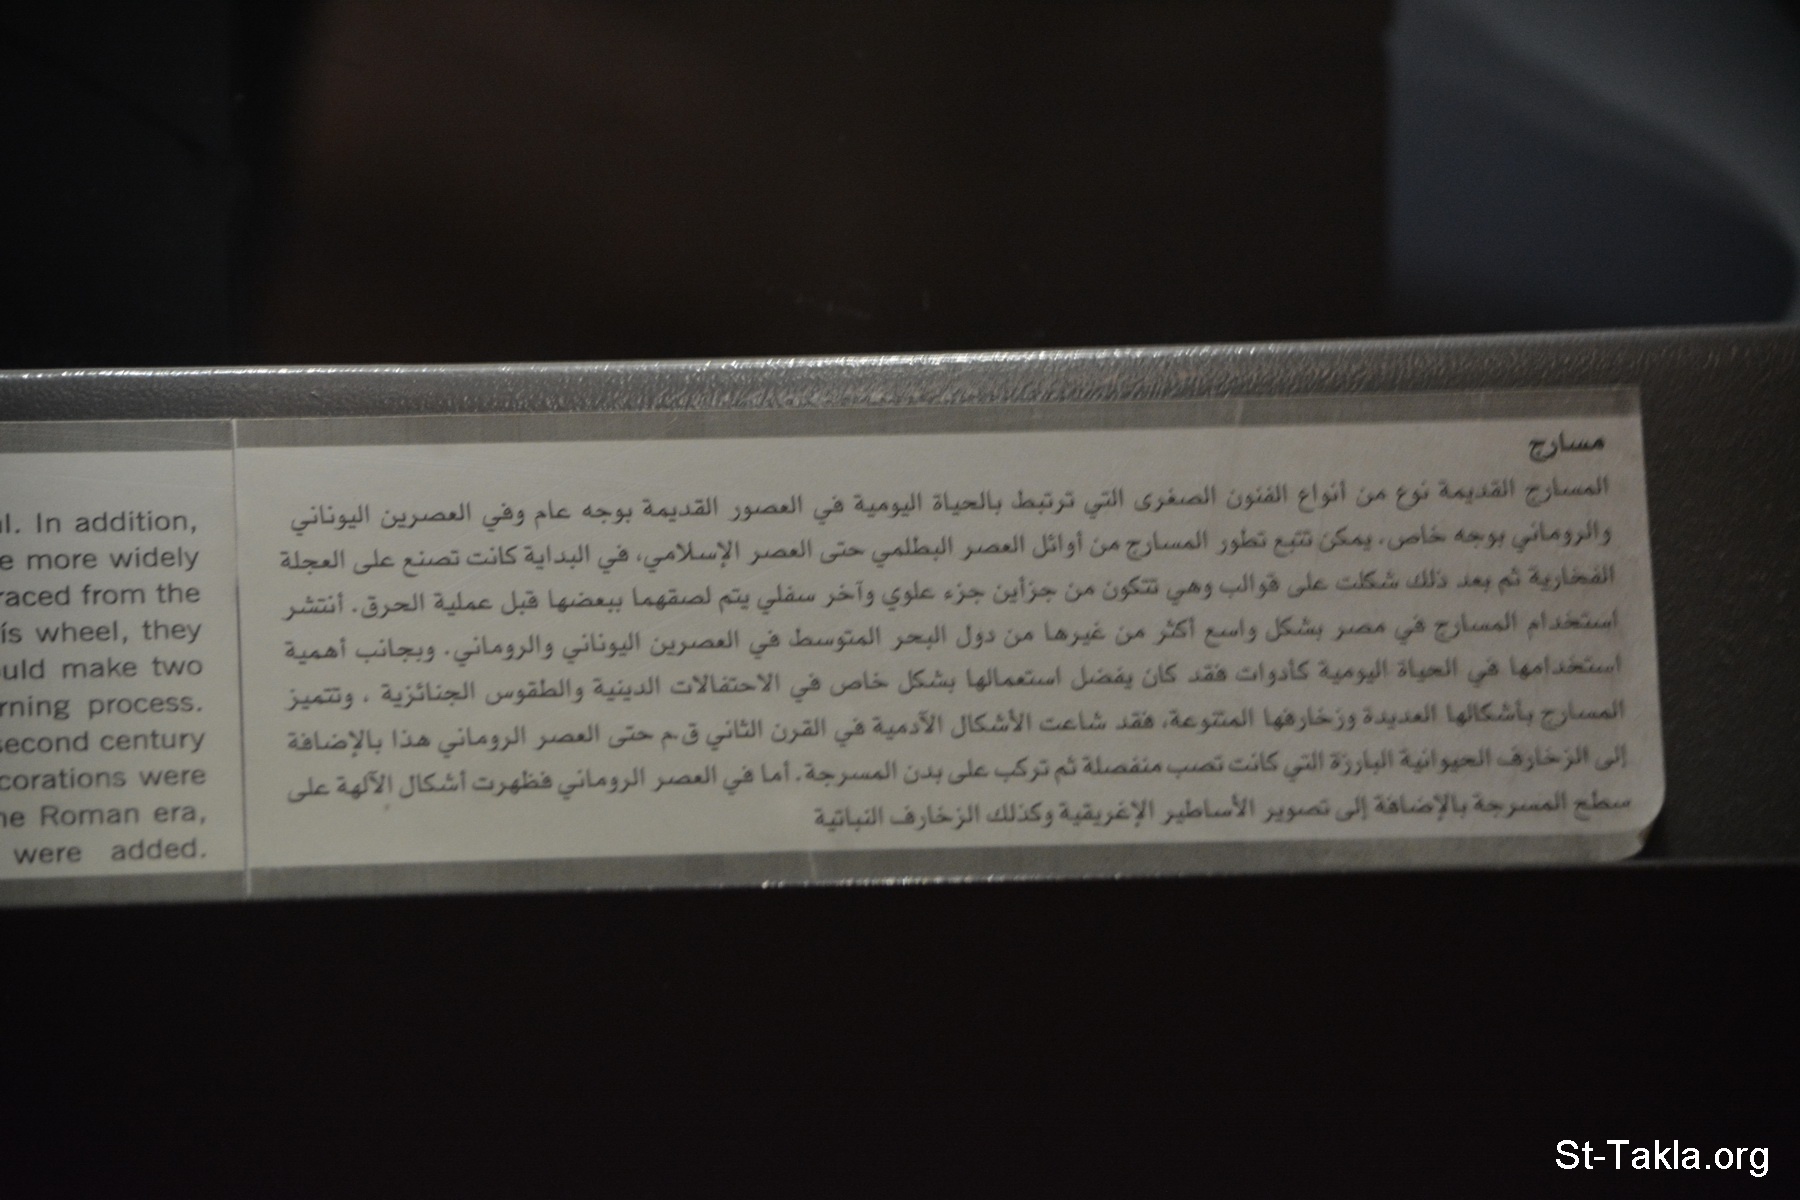 l. In addition,
e more widely
raced from the
ís wheel, they
uld make two
rning process.
second century
corations were
ne Roman era,
were added.
مسارج
المسارج القديمة نوع من أنواع الفنون الصغرى التي ترتبط بالحياة اليومية في العصور القديمة بوجه عام وفي العصرين اليوناني
والروماني بوجه خاص، يمكن تتبع تطور المسارج من أوائل العصر البطلمي حتى العصر الإسلامي، في البداية كانت تصنع على العجلة
الفخارية ثم بعد ذلك شكلت على قوالب وهي تتكون من جزأين جزء علوي وآخر سفلي يتم لصقهما ببعضها قبل عملية الحرق. أنتشر
استخدام المسارج في مصر بشكل واسع أكثر من غيرها من دول البحر المتوسط في العصرين اليوناني والروماني. وبجانب أهمية
استخدامها في الحياة اليومية كأدوات فقد كان يفضل استعمالها بشكل خاص في الاحتفالات الدينية والطقوس الجنائزية . وتتميز
المسارج بأشكالها العديدة وزخارفها المتنوعة، فقد شاعت الأشكال الآدمية في القرن الثاني ق.م حتى العصر الروماني هذا بالإضافة
إلى الزخارف الحيوانية البارزة التي كانت تصب منفصلة ثم تركب على بدن المسرجة. أما في العصر الروماني فظهرت أشكال الآلهة على
سطح المسرجة بالإضافة إلى تصوير الأساطير الإغريقية وكذلك الزخارف النباتية
St-Takla.org